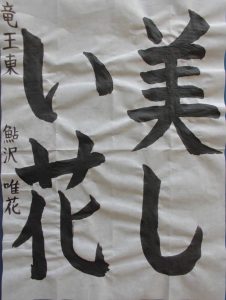 美し
い花
竜王東 鮎沢 唯花